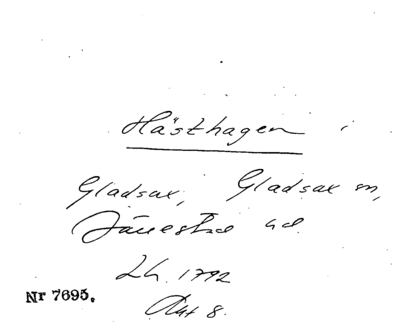 Hästhagen i
Gladsax, Gladsax sn,
Järrestad hd.
Lh. 1792
Akt 8.
Nr 7695.